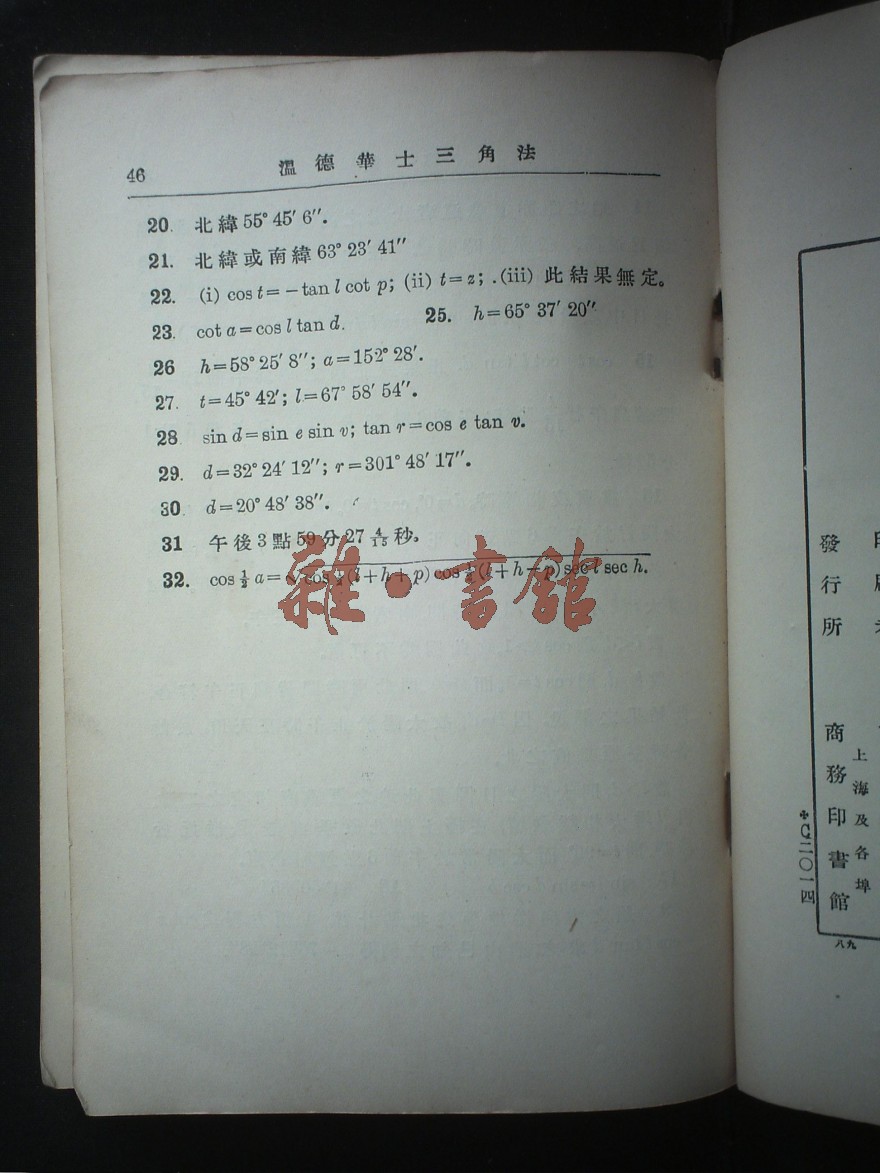 46 溫德華士三角法
20. 北緯 55° 45′ 6″.
21. 北緯或南緯 63° 23′ 41″
22. (i) cos t = −tan l cot p; (ii) t = z; .(iii) 此結果無定。
23. cot a = cos l tan d. 25. h = 65° 37′ 20″
26 h = 58° 25′ 8″; a = 152° 28′.
27. t = 45° 42′; l = 67° 58′ 54″.
28 sin d = sin e sin v; tan r = cos e tan v.
29. d = 32° 24′ 12″; r = 301° 48′ 17″.
30. d = 20° 48′ 38″.
31 午後 3 點 59 分 27 4/15 秒。
32. cos ½ a = √cos ½ (l + h + p) cos ½ (l + h − p) sec l sec h.
雜·書館
發行所
商務印書館
上海及各埠
C二〇一四
八九